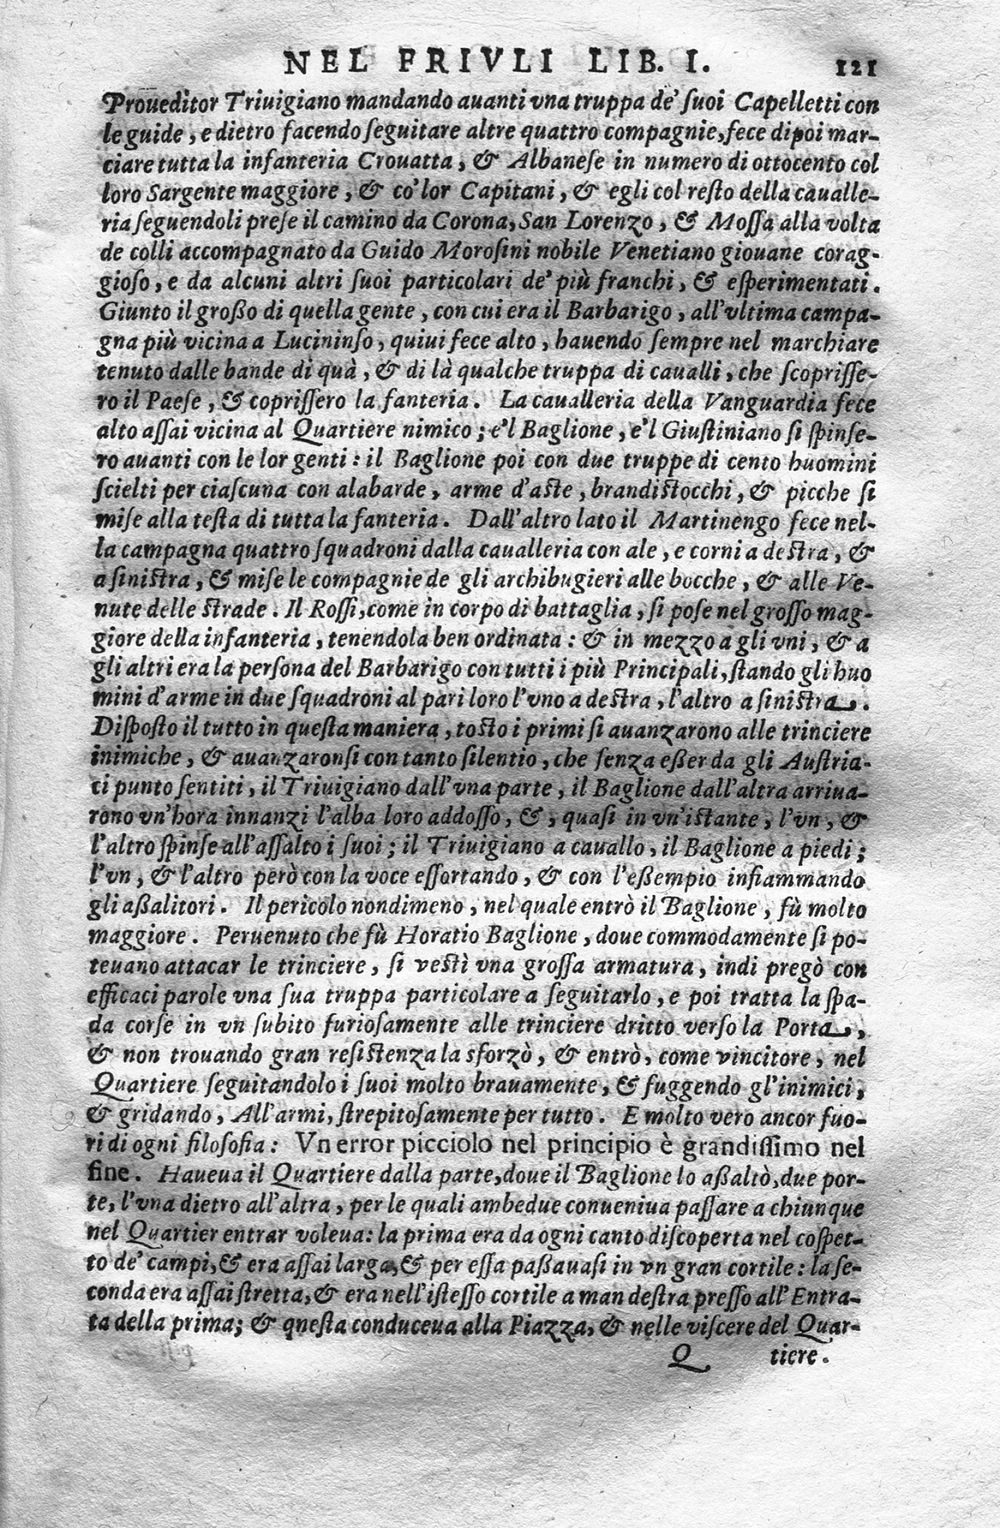 NEL FRIVLI LIB. I. 121
Proueditor Triuigiano mandando auanti vna truppa de' suoi Capelletti con
le guide, e dietro facendo seguitare altre quattro compagnie, fece dipoi mar-
ciare tutta la infanteria Crouatta, & Albanese in numero di ottocento col
loro Sargente maggiore, & co'lor Capitani, & egli col resto della caualle-
ria seguendoli prese il camino da Corona, San Lorenzo, & Mossa alla volta
de colli accompagnato da Guido Morosini nobile Venetiano giouane corag-
gioso, e da alcuni altri suoi particolari de' più franchi, & esperimentati.
Giunto il großo di quella gente, con cui era il Barbarigo, all'vltima campa-
gna più vicina a Lucininso, quiui fece alto, hauendo sempre nel marchiare
tenuto dalle bande di quà, & di là qualche truppa di caualli, che scoprisse-
ro il Paese, & coprissero la fanteria. La caualleria della Vanguardia fece
alto assai vicina al Quartiere nimico; e'l Baglione, e'l Giustiniano si spinse-
ro auanti con le lor genti: il Baglione poi con due truppe di cento huomini
scielti per ciascuna con alabarde, arme d'aste, brandistocchi, & picche si
mise alla testa di tutta la fanteria. Dall'altro lato il Martinengo fece nel-
la campagna quattro squadroni dalla caualleria con ale, e corni a destra, &
a sinistra, & mise le compagnie de gli archibugieri alle bocche, & alle Ve-
nute delle strade. Il Rossi, come in corpo di battaglia, si pose nel grosso mag-
giore della infanteria, tenendola ben ordinata: & in mezzo a gli vni, & a
gli altri era la persona del Barbarigo con tutti i più Principali, stando gli huo
mini d'arme in due squadroni al pari loro l'vno a destra, l'altro a sinistra.
Disposto il tutto in questa maniera, tosto i primi si auanzarono alle trinciere
inimiche, & auanzaronsi con tanto silentio, che senza eßer da gli Austria-
ci punto sentiti, il Triuigiano dall'vna parte, il Baglione dall'altra arriua-
rono vn'hora innanzi l'alba loro addosso, &, quasi in vn'istante, l'vn, &
l'altro spinse all'assalto i suoi; il Triuigiano a cauallo, il Baglione a piedi;
l'vn, & l'altro però con la voce essortando, & con l'eßempio infiammando
gli aßalitori. Il pericolo nondimeno, nel quale entrò il Baglione, fù molto
maggiore. Peruenuto che fù Horatio Baglione, doue commodamente si po-
teuano attacar le trinciere, si vestì vna grossa armatura, indi pregò con
efficaci parole vna sua truppa particolare a seguitarlo, e poi tratta la spa-
da corse in vn subito furiosamente alle trinciere dritto verso la Porta,
& non trouando gran resistenza la sforzò, & entrò, come vincitore, nel
Quartiere seguitandolo i suoi molto brauamente, & fuggendo gl'inimici,
& gridando, All'armi, strepitosamente per tutto. E molto vero ancor fuo-
ri di ogni filosofia: Vn error picciolo nel principio è grandissimo nel
fine. Haueua il Quartiere dalla parte, doue il Baglione lo aßaltò, due por-
te, l'vna dietro all'altra, per le quali ambedue conueniua passare a chiunque
nel Quartier entrar voleua: la prima era da ogni canto discoperta nel cospet-
to de' campi, & era assai larga, & per essa paßauasi in vn gran cortile: la se-
conda era assai stretta, & era nell'istesso cortile a man destra presso all'Entra-
ta della prima; & qnesta conduceua alla Piazza, & nelle viscere del Quar-
Q tiere.